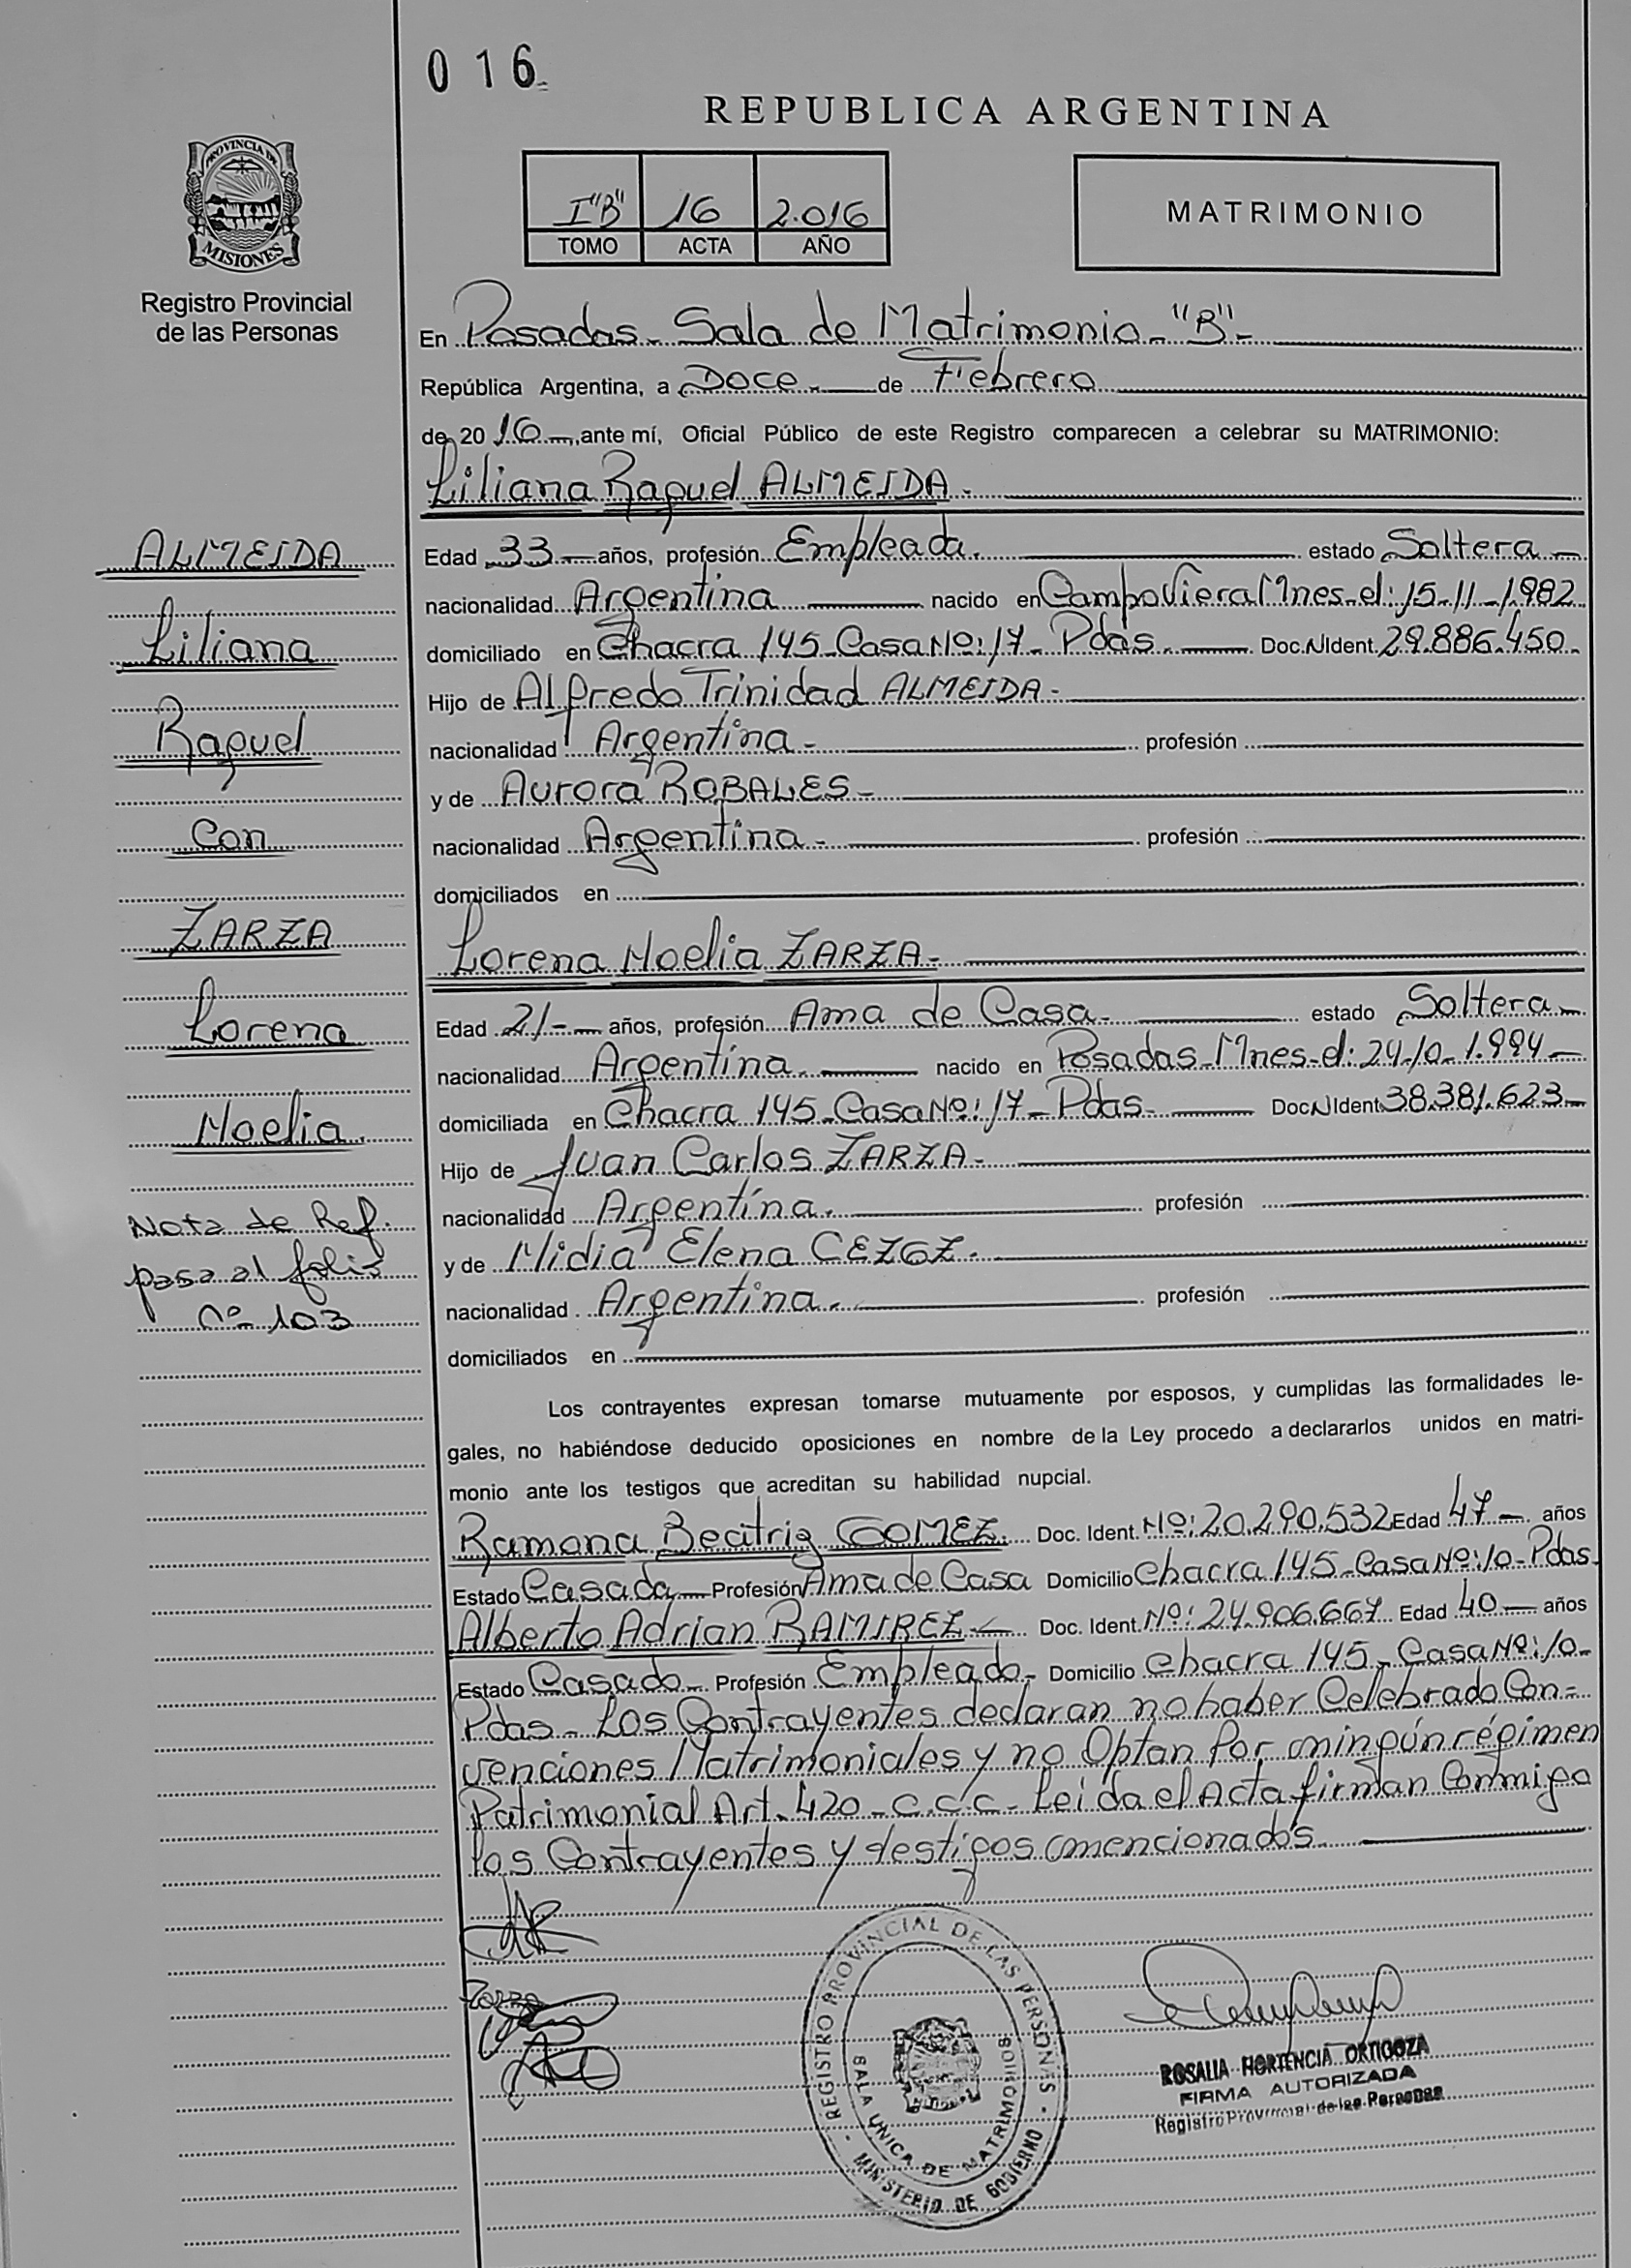 016
REPUBLICA ARGENTINA
PROVINCIA DE
MISIONES
Registro Provincial
de las Personas
I"B" 16 2.016
TOMO ACTA AÑO
MATRIMONIO
En Posadas - Sala de Matrimonio - "B" -
República Argentina, a Doce - de Febrero
de 2016 -, ante mí, Oficial Público de este Registro comparecen a celebrar su MATRIMONIO:
Liliana Raquel ALMEIDA -
Edad 33 - años, profesión Empleada. estado Soltera -
nacionalidad Argentina nacido en Campo Viera Mnes - el: 15-11-1.982
domiciliado en Chacra 145 - Casa Nº: 17 - Pdas. - Doc. N Ident. 29.886.450 -
Hijo de Alfredo Trinidad ALMEIDA -
nacionalidad Argentina - profesión
y de Aurora ROBALES -
nacionalidad Argentina - profesión
domiciliados en
Lorena Noelia ZARZA -
Edad 21 - años, profesión Ama de Casa - estado Soltera -
nacionalidad Argentina. nacido en Posadas - Mnes - el: 24-10-1.994 -
domiciliada en Chacra 145 - Casa Nº: 17 - Pdas - Doc. N Ident. 38.381.623 -
Hijo de Juan Carlos ZARZA -
nacionalidad Argentina. profesión
y de Nidia Elena
nacionalidad Argentina. profesión
domiciliados en
ALMEIDA
Liliana
Raquel
Con
ZARZA
Lorena
Noelia
Nota de Ref.
pasa al folio
nº 103
Los contrayentes expresan tomarse mutuamente por esposos, y cumplidas las formalidades le-
gales, no habiéndose deducido oposiciones en nombre de la Ley procedo a declararlos unidos en matri-
monio ante los testigos que acreditan su habilidad nupcial.
Ramona Beatriz GOMEZ. Doc. Ident. Nº: 20.290.532 Edad 47 - años
Estado Casada - Profesión Ama de Casa Domicilio Chacra 145 - Casa Nº: 10 - Pdas -
Alberto Adrian RAMIREZ - Doc. Ident. Nº: 24.906.667 Edad 40 - años
Estado Casado - Profesión Empleado - Domicilio Chacra 145 - Casa Nº: 10 -
Pdas - Los Contrayentes declaran no haber Celebrado Con=
venciones Matrimoniales y no Optan Por ningún régimen
Patrimonial Art. 420 - C.C.C - Leída el Acta firman Conmigo
los Contrayentes y testigos mencionados.
Zarza
REGISTRO PROVINCIAL DE LAS PERSONAS -
SALA UNICA DE MATRIMONIOS
- MINISTERIO DE GOBIERNO -
ROSALIA HORTENCIA ORTIGOZA
FIRMA AUTORIZADA
Registro Provincial de las Personas